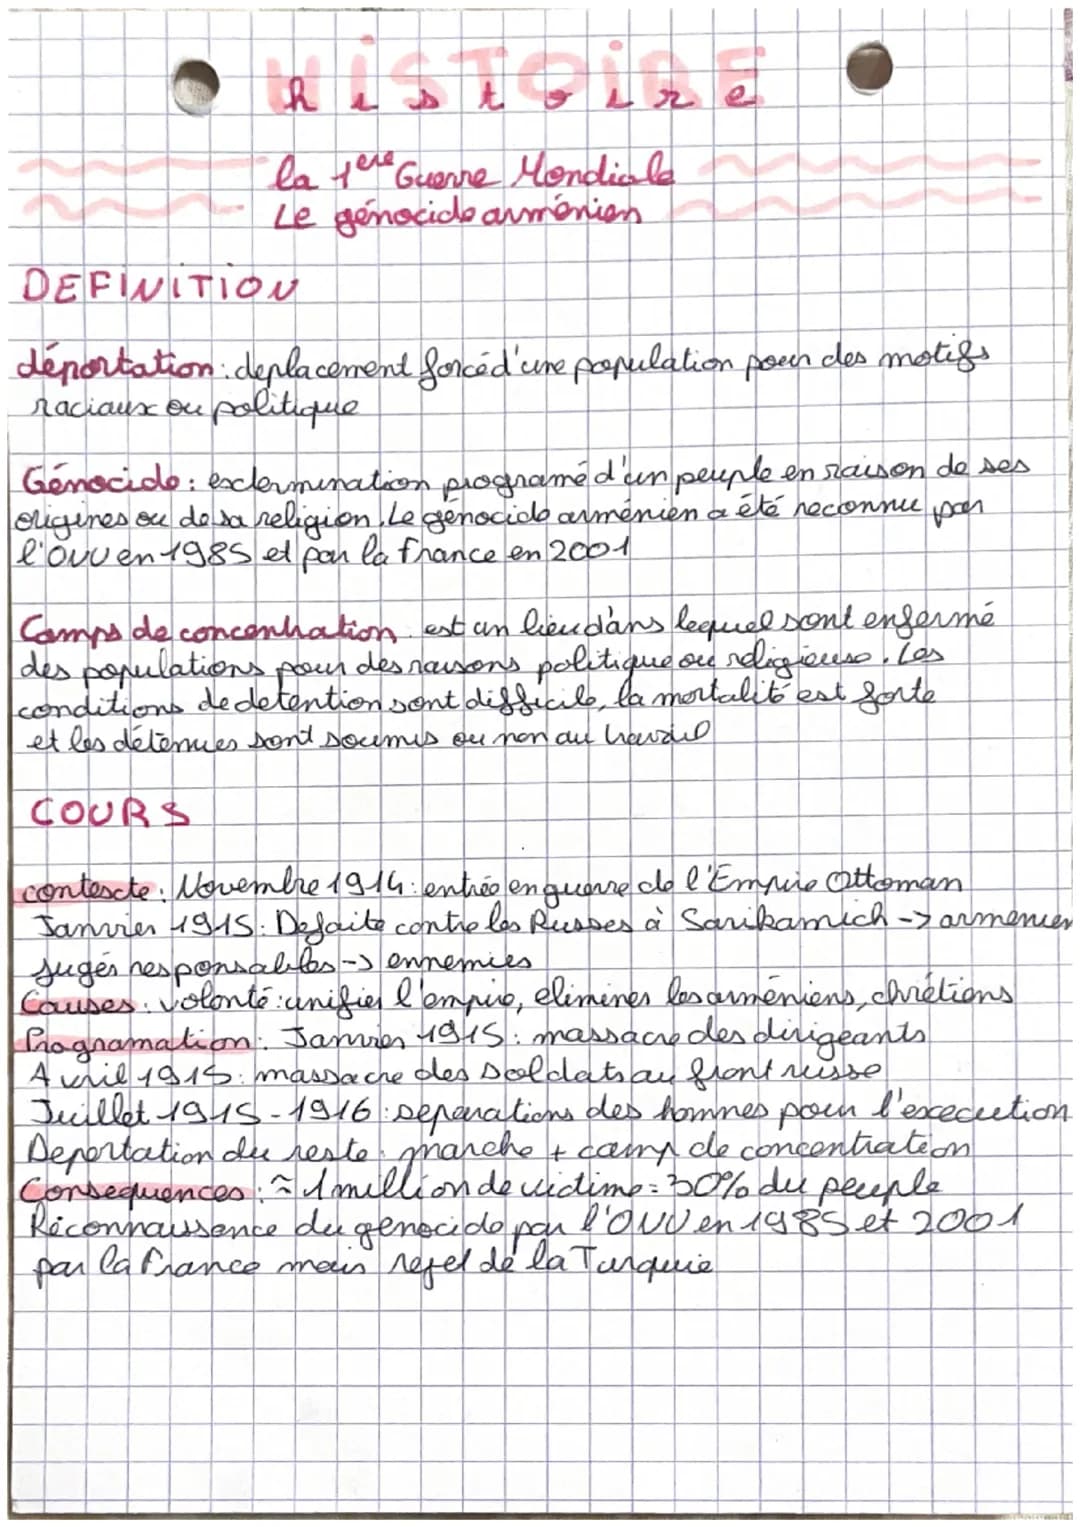 HISTOIRE
histoire
la 1ere Guerre Mondiale
Le génocide arménien
DEFINITION
déportation : deplacement forcé d'une population pour des motifs
raciaux ou politique
Génocide : extermination programé d'un peuple en raison de ses
origines ou de sa religion. Le génocide arménien a été reconnu par
l'ONU en 1985 et par la france en 2001
Camps de concentration est un lieu dans lequel sont enfermé
des populations pour des raisons politique ou religieuse. Les
conditions de detention sont difficile, la mortalité est forte
et les détenues sont soumis ou non au travail
COURS
contexte : Novembre 1914 : entrée en guerre de l'Empire Ottoman
Janvier 1915 : Defaite contre les Russes à Sarikamich -> armenien
jugés responsables -> ennemies
Causes : volonté : unifier l'empire, éliminer les arméniens, chrétiens
Programation : Janvier 1915 : massacre des dirigeants
Avril 1915 : massacre des soldats au front russe
Juillet 1915 - 1916 : separations des hommes pour l'execution
Deportation du reste : marche + camp de concentration
Consequences : ≈ 1 million de victime = 30% du peuple
Réconnaissence du génocide par l'ONU en 1985 et 2001
par la france mais rejet de la Turquie